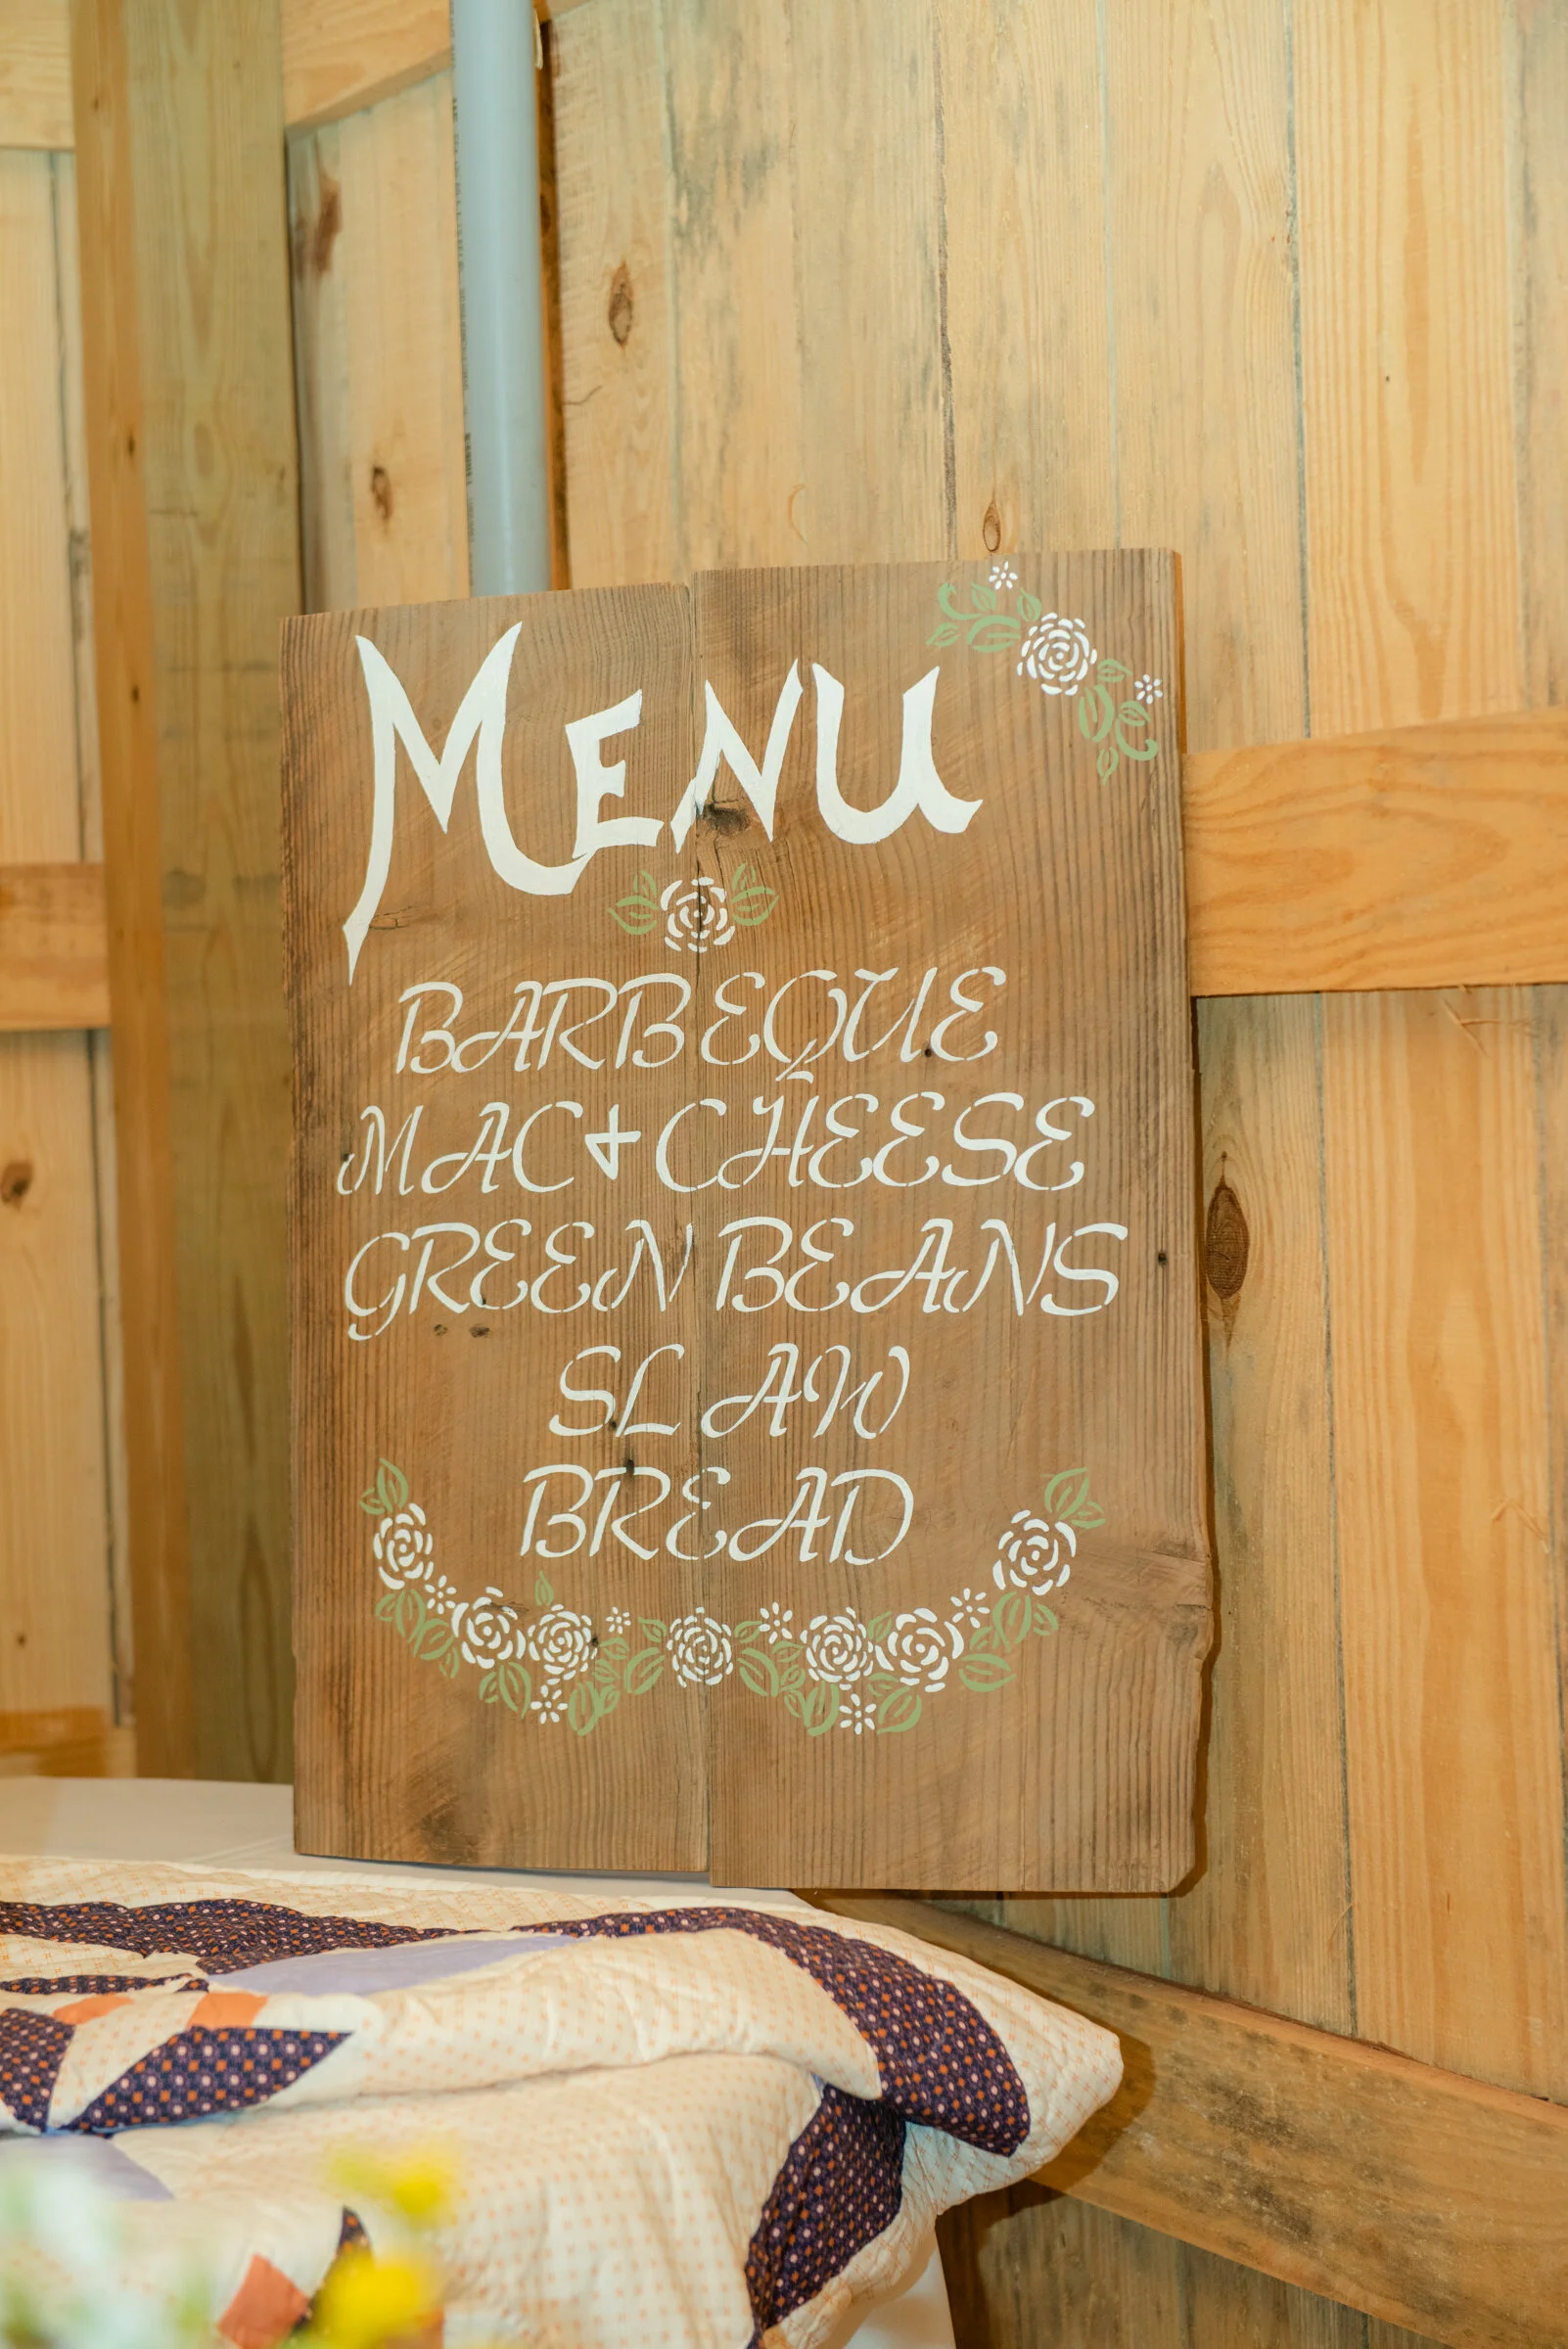 MENU
BARBEQUE
MAC & CHEESE
GREEN BEANS
SLAW
BREAD